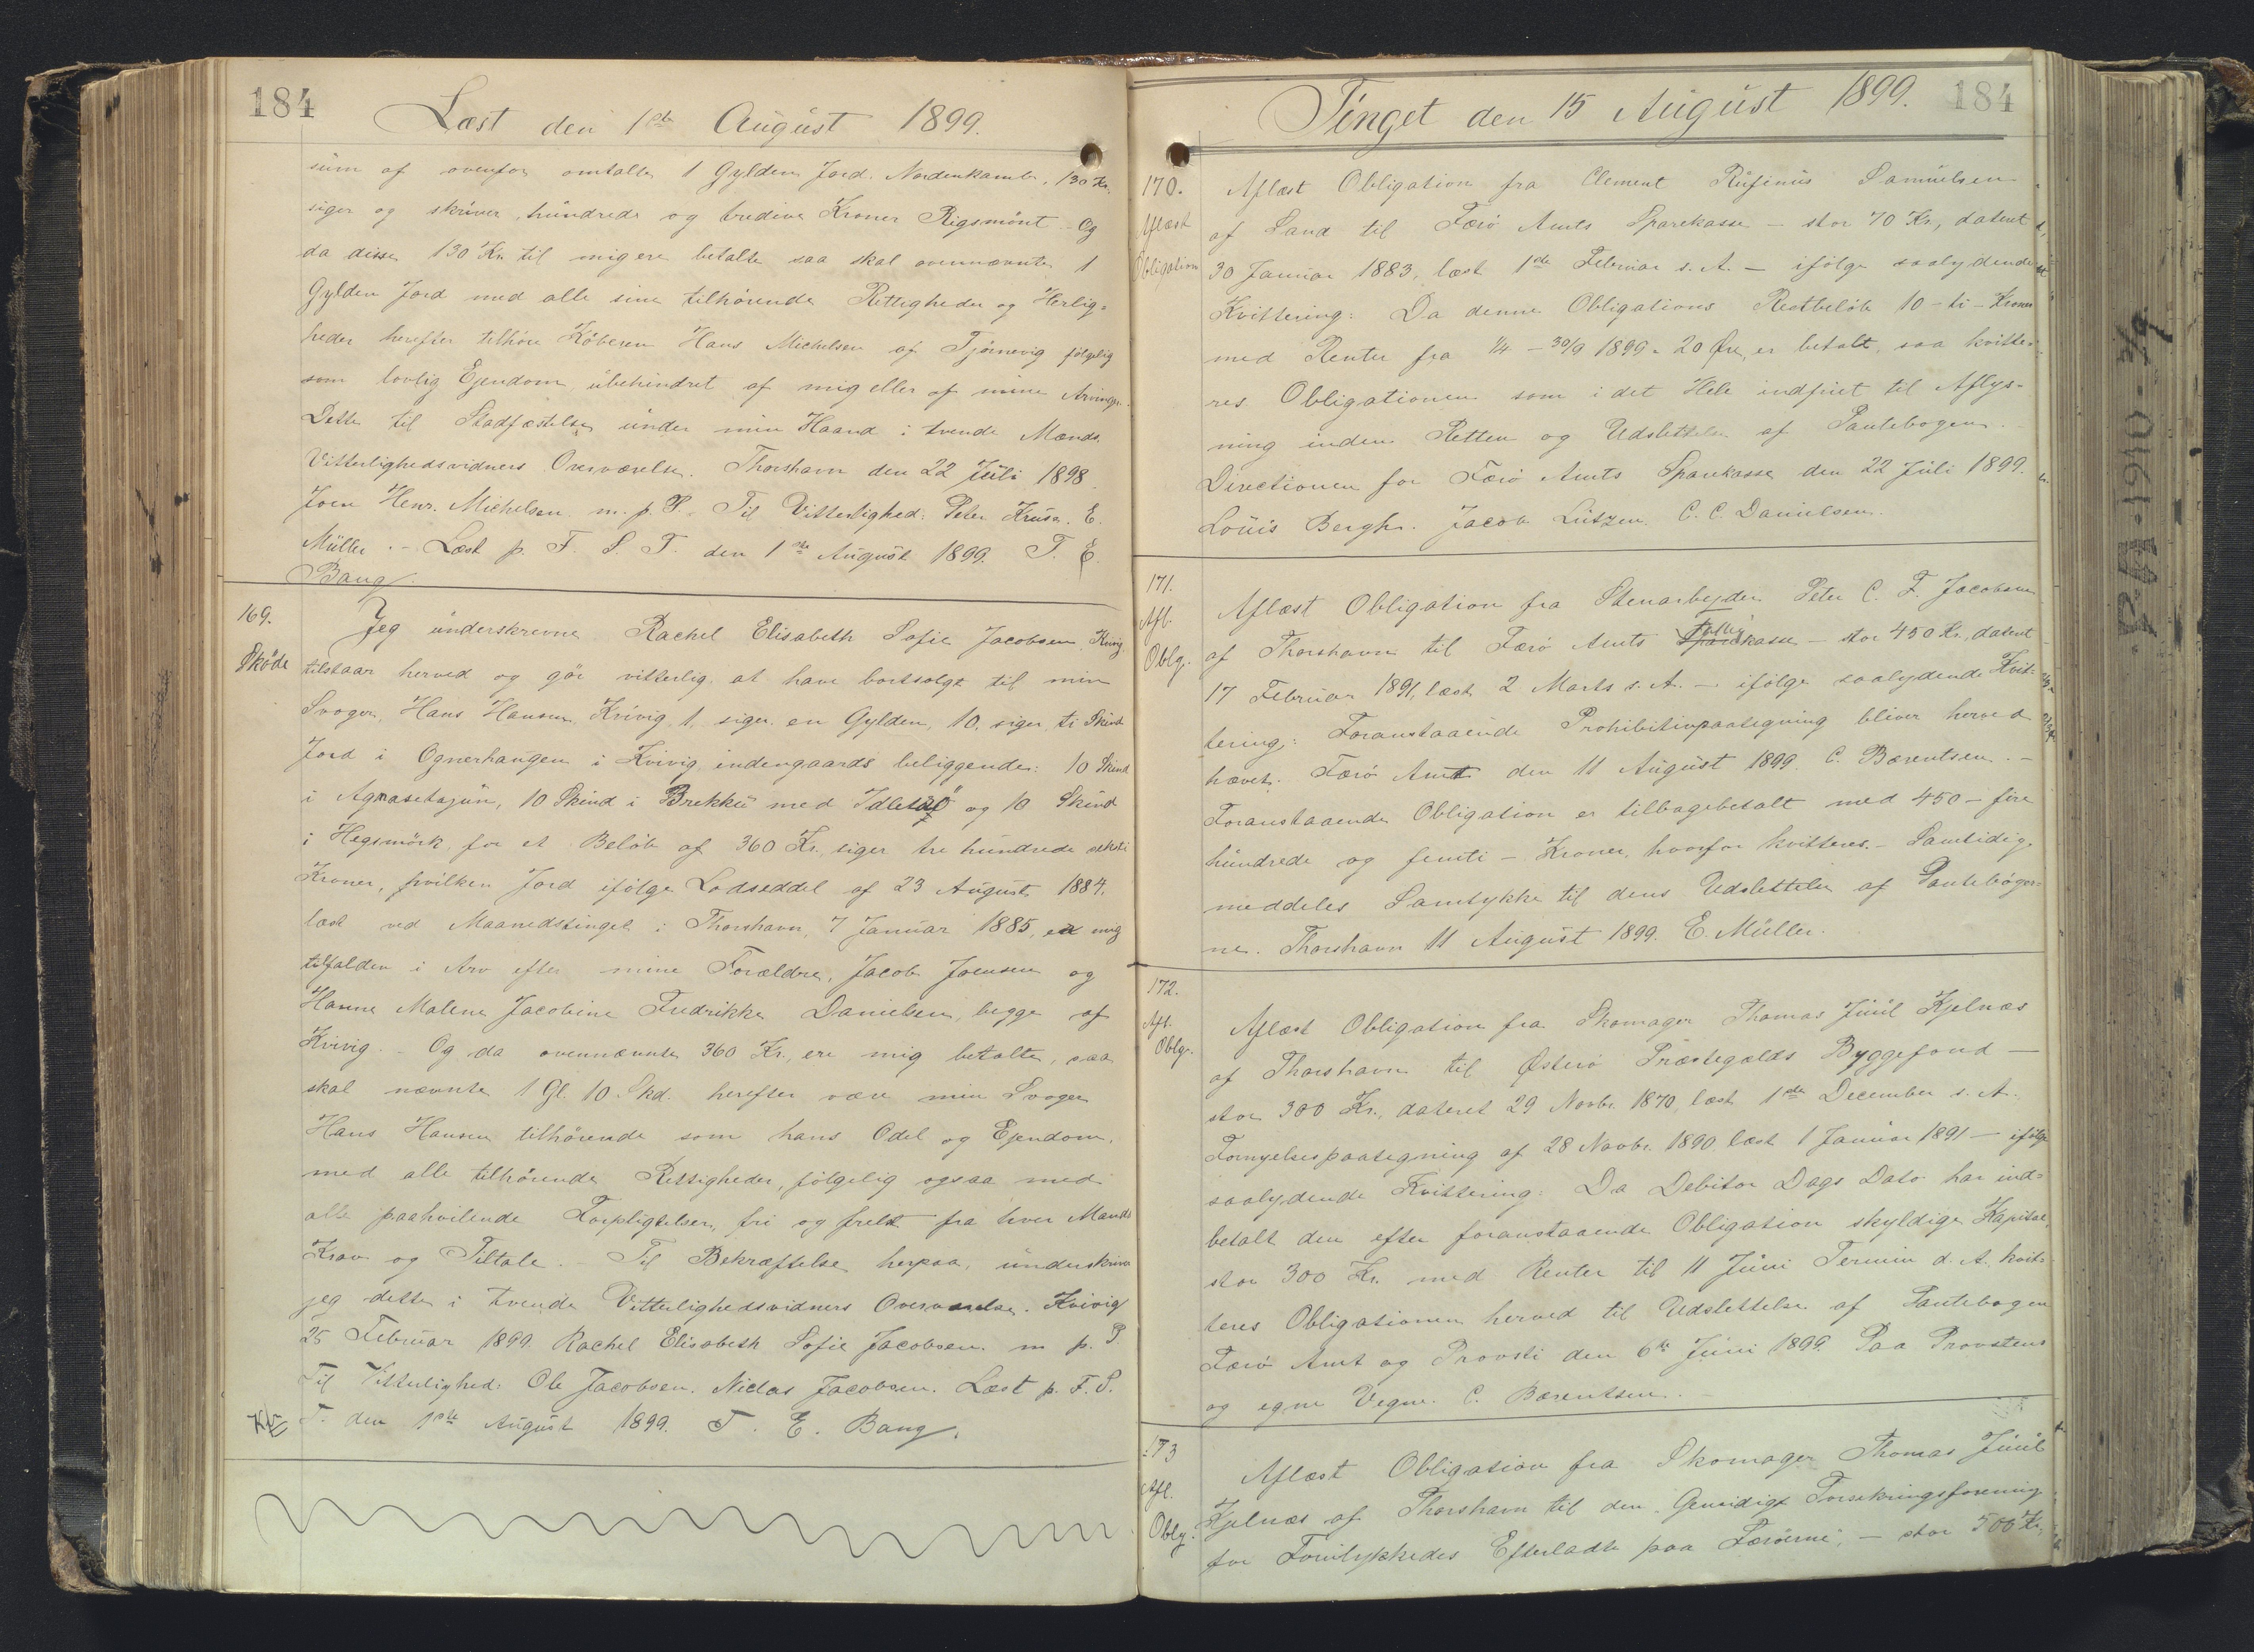 184
Læst den 1ste August 1899.
sum af ovenfor omtalte 1 Gylden Jord. Nordenkambe, 130 Kr.
siger og skriver hundrede og tredive Kroner Rigsmönt. - Og
da disse 130 Kr. til mig ere betalte saa skal ovennævnte 1
Gylden Jord med alle sine tilhörende Rettigheder og Herlig=
heder herefter tilhöre Köberen Hans Michelsen af Tjörnevig fölgelig
som lovlig Ejendom ubehindret af mig eller af mine Arvinger.
Dette til Stadfæstelse under min Haand i tvende Mænds
Vitterlighedsvidners Overværelse. Thorshavn den 22 Juli 1898.
Joen Henr. Michelsen m. p. P. Til Vitterlighed: Peter Kruse. E.
Müller. - Læst p. F. S. T. den 1ste August 1899. T. E.
Bang.
169.
Sköde
Jeg underskrevne Rachel Elisabeth Sofie Jacobsen, Kvivig,
tilstaar herved og gör vitterlig at have bortsolgt til min
Svoger, Hans Hansen, Kvivig, 1, siger en Gylden, 10, siger ti Skind
Jord i Ognerhaugen i Kvivig indengaards beliggende: 10 Skind
i Agnasetujun, 10 Skind i Brekku med og 10 Skind
i Hegsmörk, for et Belöb af 360 Kr., siger tre hundrede seksti
Kroner, hvilken Jord ifölge Lodseddel af 23 August 1884,
læst ved Maanedstinget i Thorshavn, 7 Januar 1885, er mig
tilfalden i Arv efter mine Forældre, Jacob Joensen og
Hanne Malene Jacobine Fredrikke Danielsen, begge af
Kvivig. - Og da ovennævnte 360 Kr., ere mig betalte, saa
skal nævnte 1 Gl. 10. Skd. herefter være min Svoger
Hans Hansen tilhörende som hans Odel og Ejendom,
med alle tilhörende Rettigheder, fölgelig ogsaa med
alle paahvilende Forpligtelser, fri og frelst fra hver Mands
Krav og Tiltale. - Til Bekræftelse herpaa, underskriver
jeg dette i tvende Vitterlighedsvidners Overværelse. Kvivig
25 Februar 1899. Rachel Elisabeth Sofie Jacobsen. m. p. P.
Til Vitterlighed: Ole Jacobsen. Niclas Jacobsen. Læst p. F. S.
T. den 1ste August 1899. T. E. Bang.
Tinget den 15 August 1899.
184
170.
Aflæst
Obligation
Aflæst Obligation fra Clement Rufinus Samuelsen
af Sand til Færö Amts Sparekasse - stor 70 Kr., dateret
30 Januar 1883, læst 1ste Februar s. A. - ifölge saalydende
Kvittering: Da denne Obligations Restbelöb 10 - ti - Kroner
med Renter fra 1/4 - 30/9 1899 = 20 Øre, er betalt, saa kvitte=
res Obligationen som i det Hele indfriet til Aflys=
ning inden Retten og Udslettelse af Pantebogen.
Directionen for Færö Amts Sparekasse den 22 Juli 1899.
Louis Bergh. Jacob Lützen. C. C. Danielsen.
171.
Afl.
Oblg.
Aflæst Obligation fra Stenarbejder Peter C. F. Jacobsen
af Thorshavn til Færö Amts Fattigkasse - stor 450 Kr., dateret
17 Februar 1891, læst 2 Marts s. A. - ifölge saalydende Kvit=
tering: Foranstaaende Prohibitivpaategning bliver herved
hævet. Færö Amt den 11 August 1899. C. Bærentsen. -
Foranstaaende Obligation er tilbagebetalt med 450 - fire
hundrede og femti - Kroner, hvorfor kvitteres. - Samtidig
meddeles Samtykke til dens Udslettelse af Pantebøger=
ne. Thorshavn 11 August 1899. E. Müller.
172.
Afl.
Oblg.
Aflæst Obligation fra Skomager Thomas Juul Kjelnæs
af Thorshavn til Østerö Præstegælds Byggefond -
stor 300 Kr., dateret 29 Novbr. 1870, læst 1ste December s. A.,
Fornyelsespaategning af 28 Novbr. 1890 læst 1 Januar 1891 - ifölge
saalydende Kvittering: Da Debitor Dags Dato har ind=
betalt den efter foranstaaende Obligation skyldige Kapital,
stor 300 Kr. med Renter til 11 Juni Termin d. A. kvit=
teres Obligationen herved til Udslettelse af Pantebogen
Færö Amt og Provsti den 6te Juni 1899. Paa Provstens
og egne Vegne. C. Bærentsen. -
173
Afl.
Oblg.
Aflæst Obligation fra Skomager Thomas Juul
Kjelnæs af Thorshavn til den Gensidige Forsikringsforening
for Forulykkedes Efterladte paa Færöerne, - stor 500 Kr.,